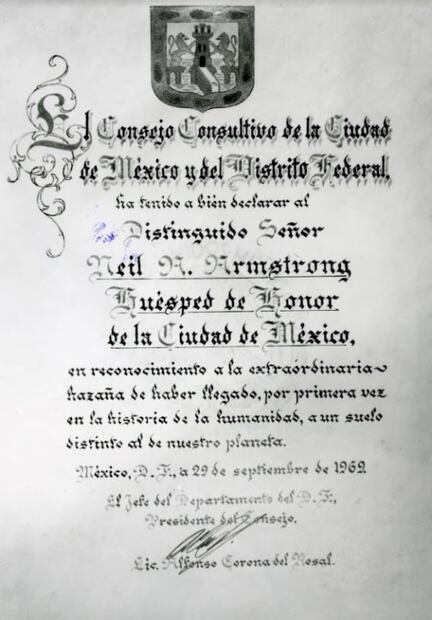 El Consejo Consultivo de la Ciudad
de México y del Distrito Federal,
ha tenido a bien declarar al
Distinguido Señor
Neil A. Armstrong
Huésped de Honor
de la Ciudad de México,
en reconocimiento a la extraordinaria
hazaña de haber llegado, por primera vez
en la historia de la humanidad, a un suelo
distinto al de nuestro planeta.
México, D. F., a 29 de septiembre de 1969
El Jefe del Departamento del D. F.,
Presidente del Consejo,
Lic. Alfonso Corona del Rosal.